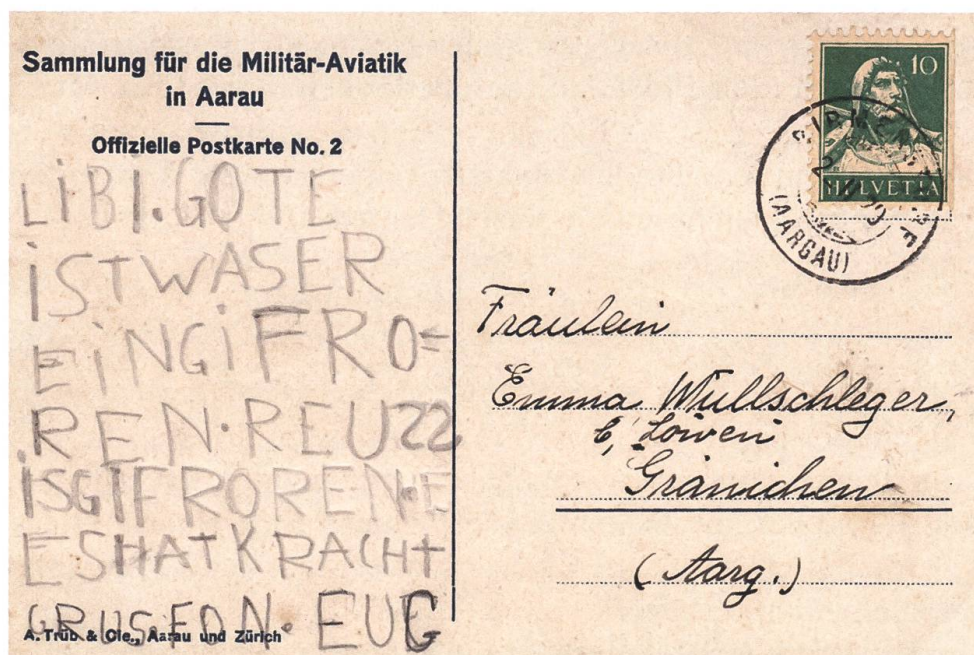 Sammlung für die Militär-Aviatik
in Aarau
Offizielle Postkarte No. 2
LiBI.GOTE
iSTWASER
EiNGiFRO=
REN.REUZZ
iSGIFRORENE
ESHATKRACHT
GRUS.FON.EUG
A. Trüb & Cie., Aarau und Zürich
10
HELVETIA
(AARGAU)
Fräulein
Emma Wullschleger,
z, Löwen
Gränichen
(Aarg.)